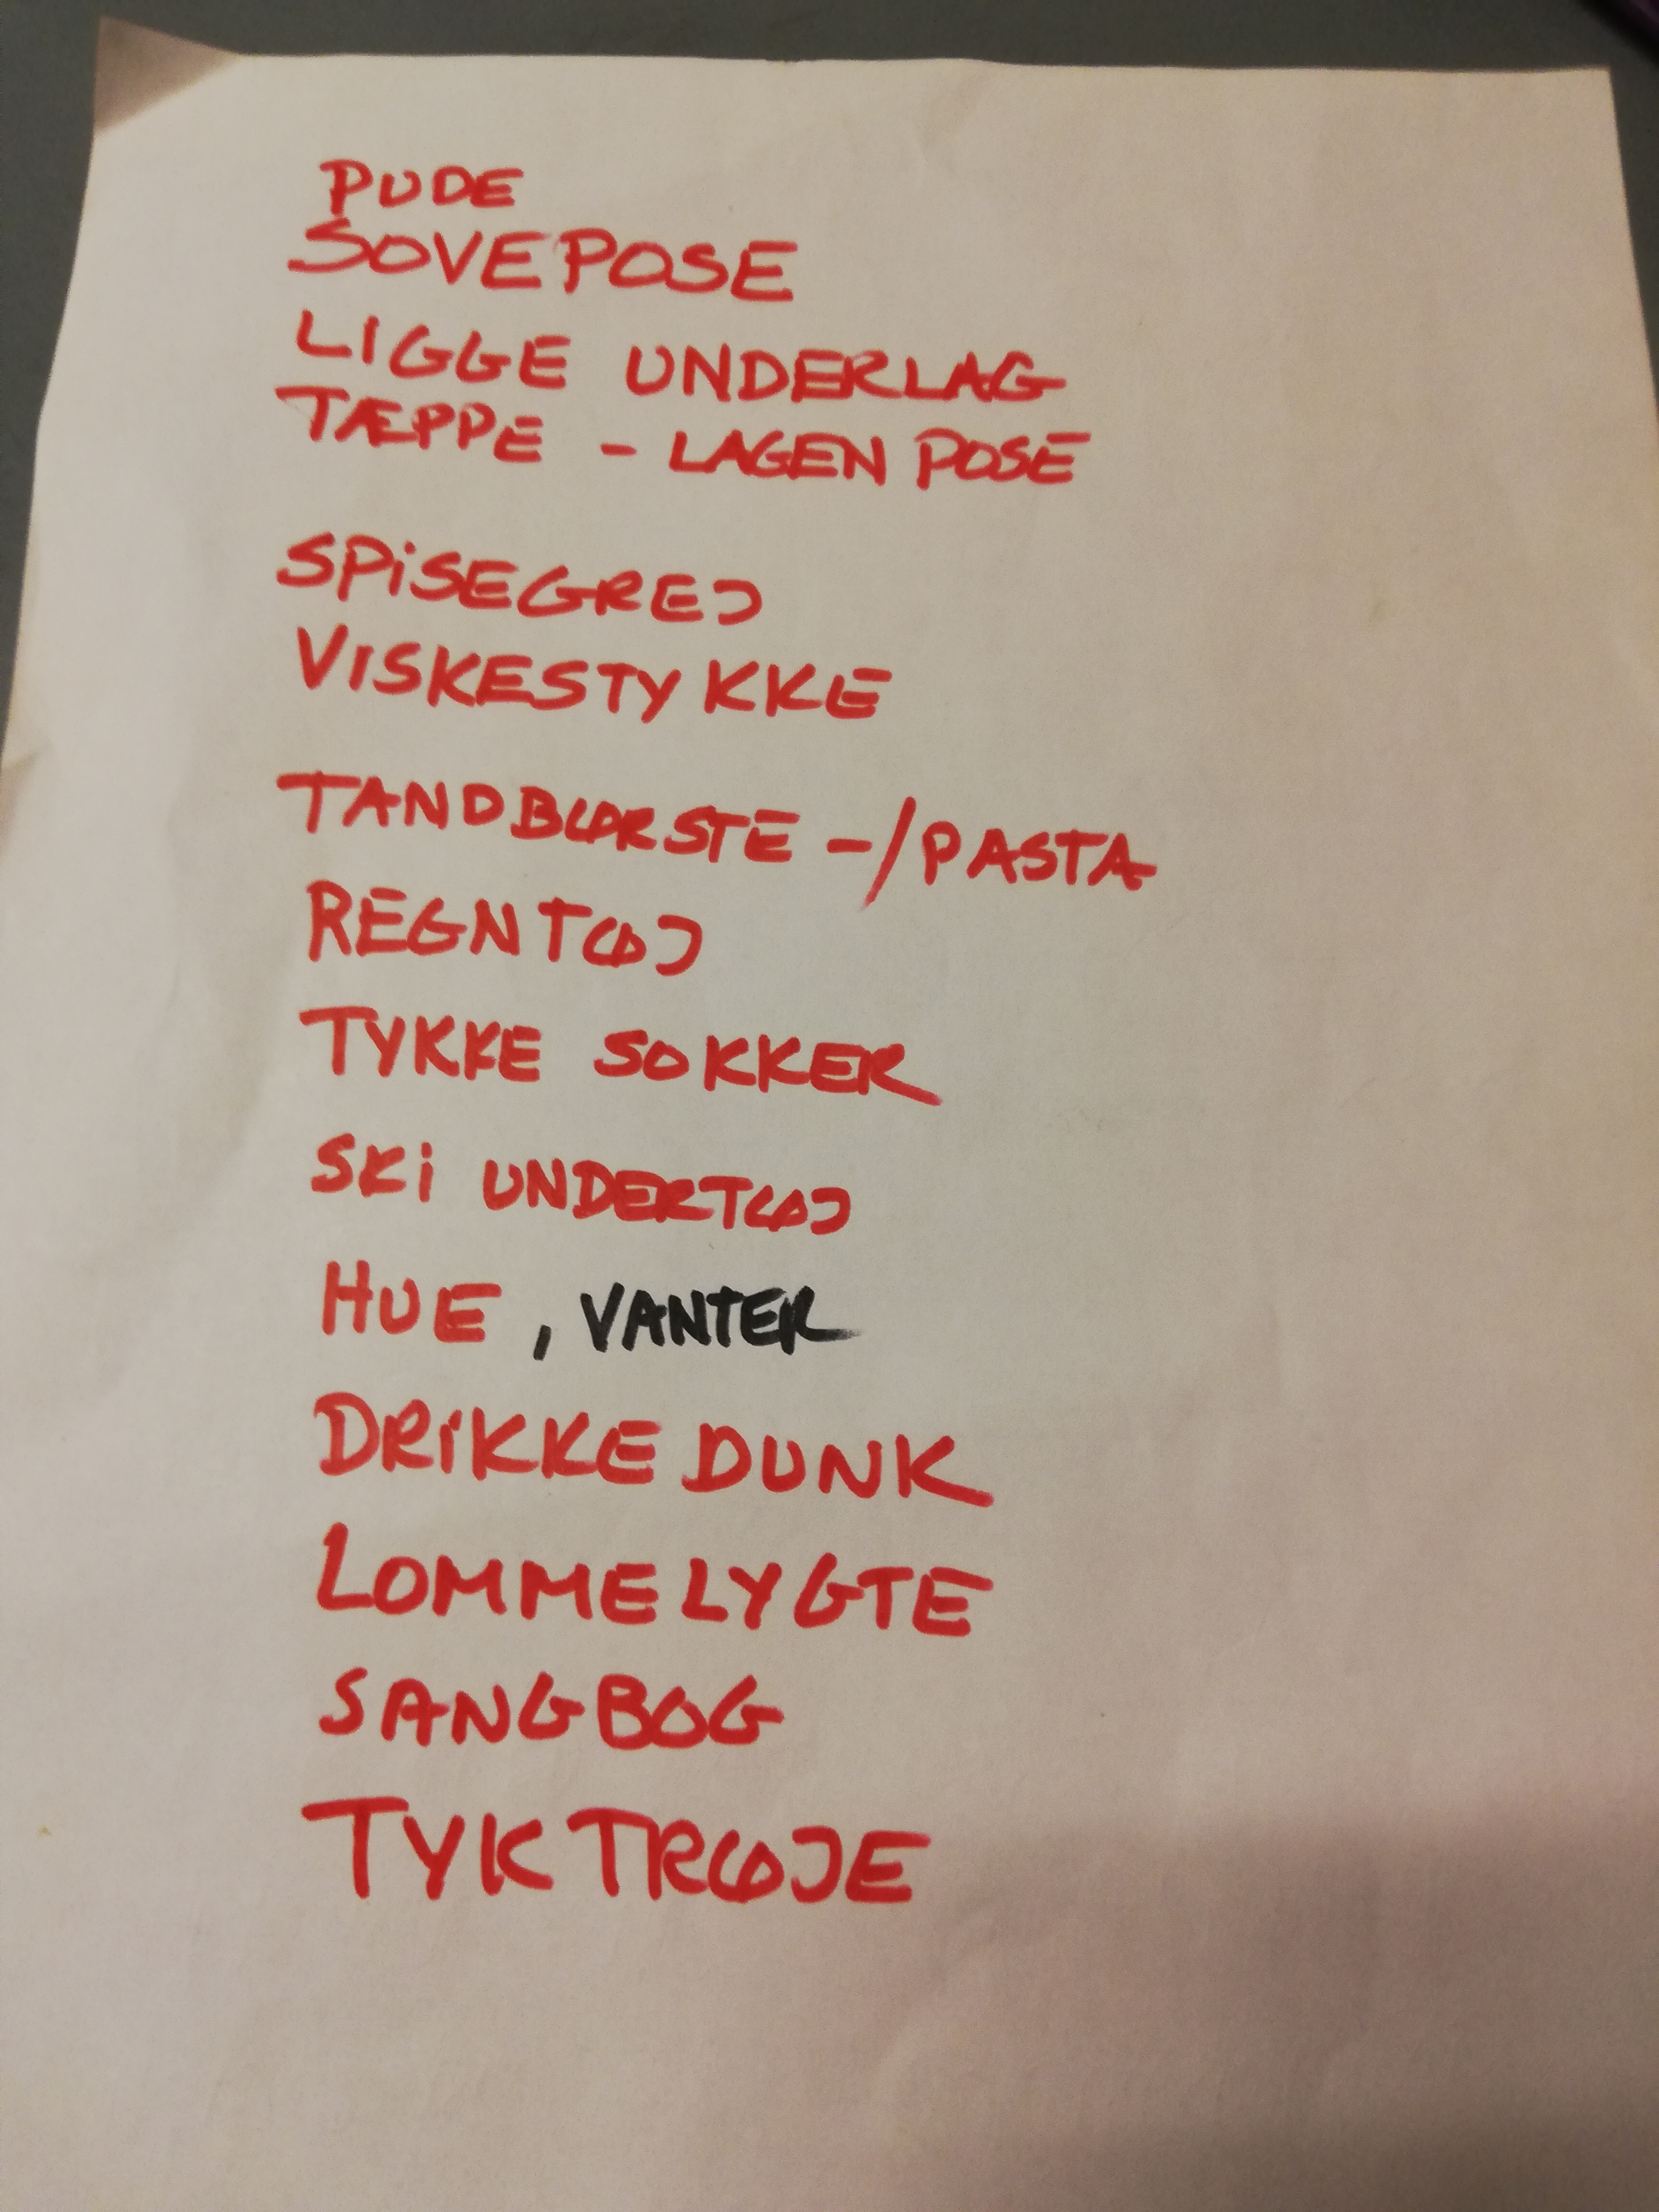 PUDE
SOVEPOSE
LIGGE UNDERLAG
TÆPPE - LAGEN POSE
SPiSEGREJ
VISKESTYKKE
TANDBØRSTE -/PASTA
REGNTØJ
TYKKE SOKKER
SKi UNDERTØJ
HUE, VANTER
DRiKKE DUNK
LOMMELYGTE
SANGBOG
TYK TRØJE